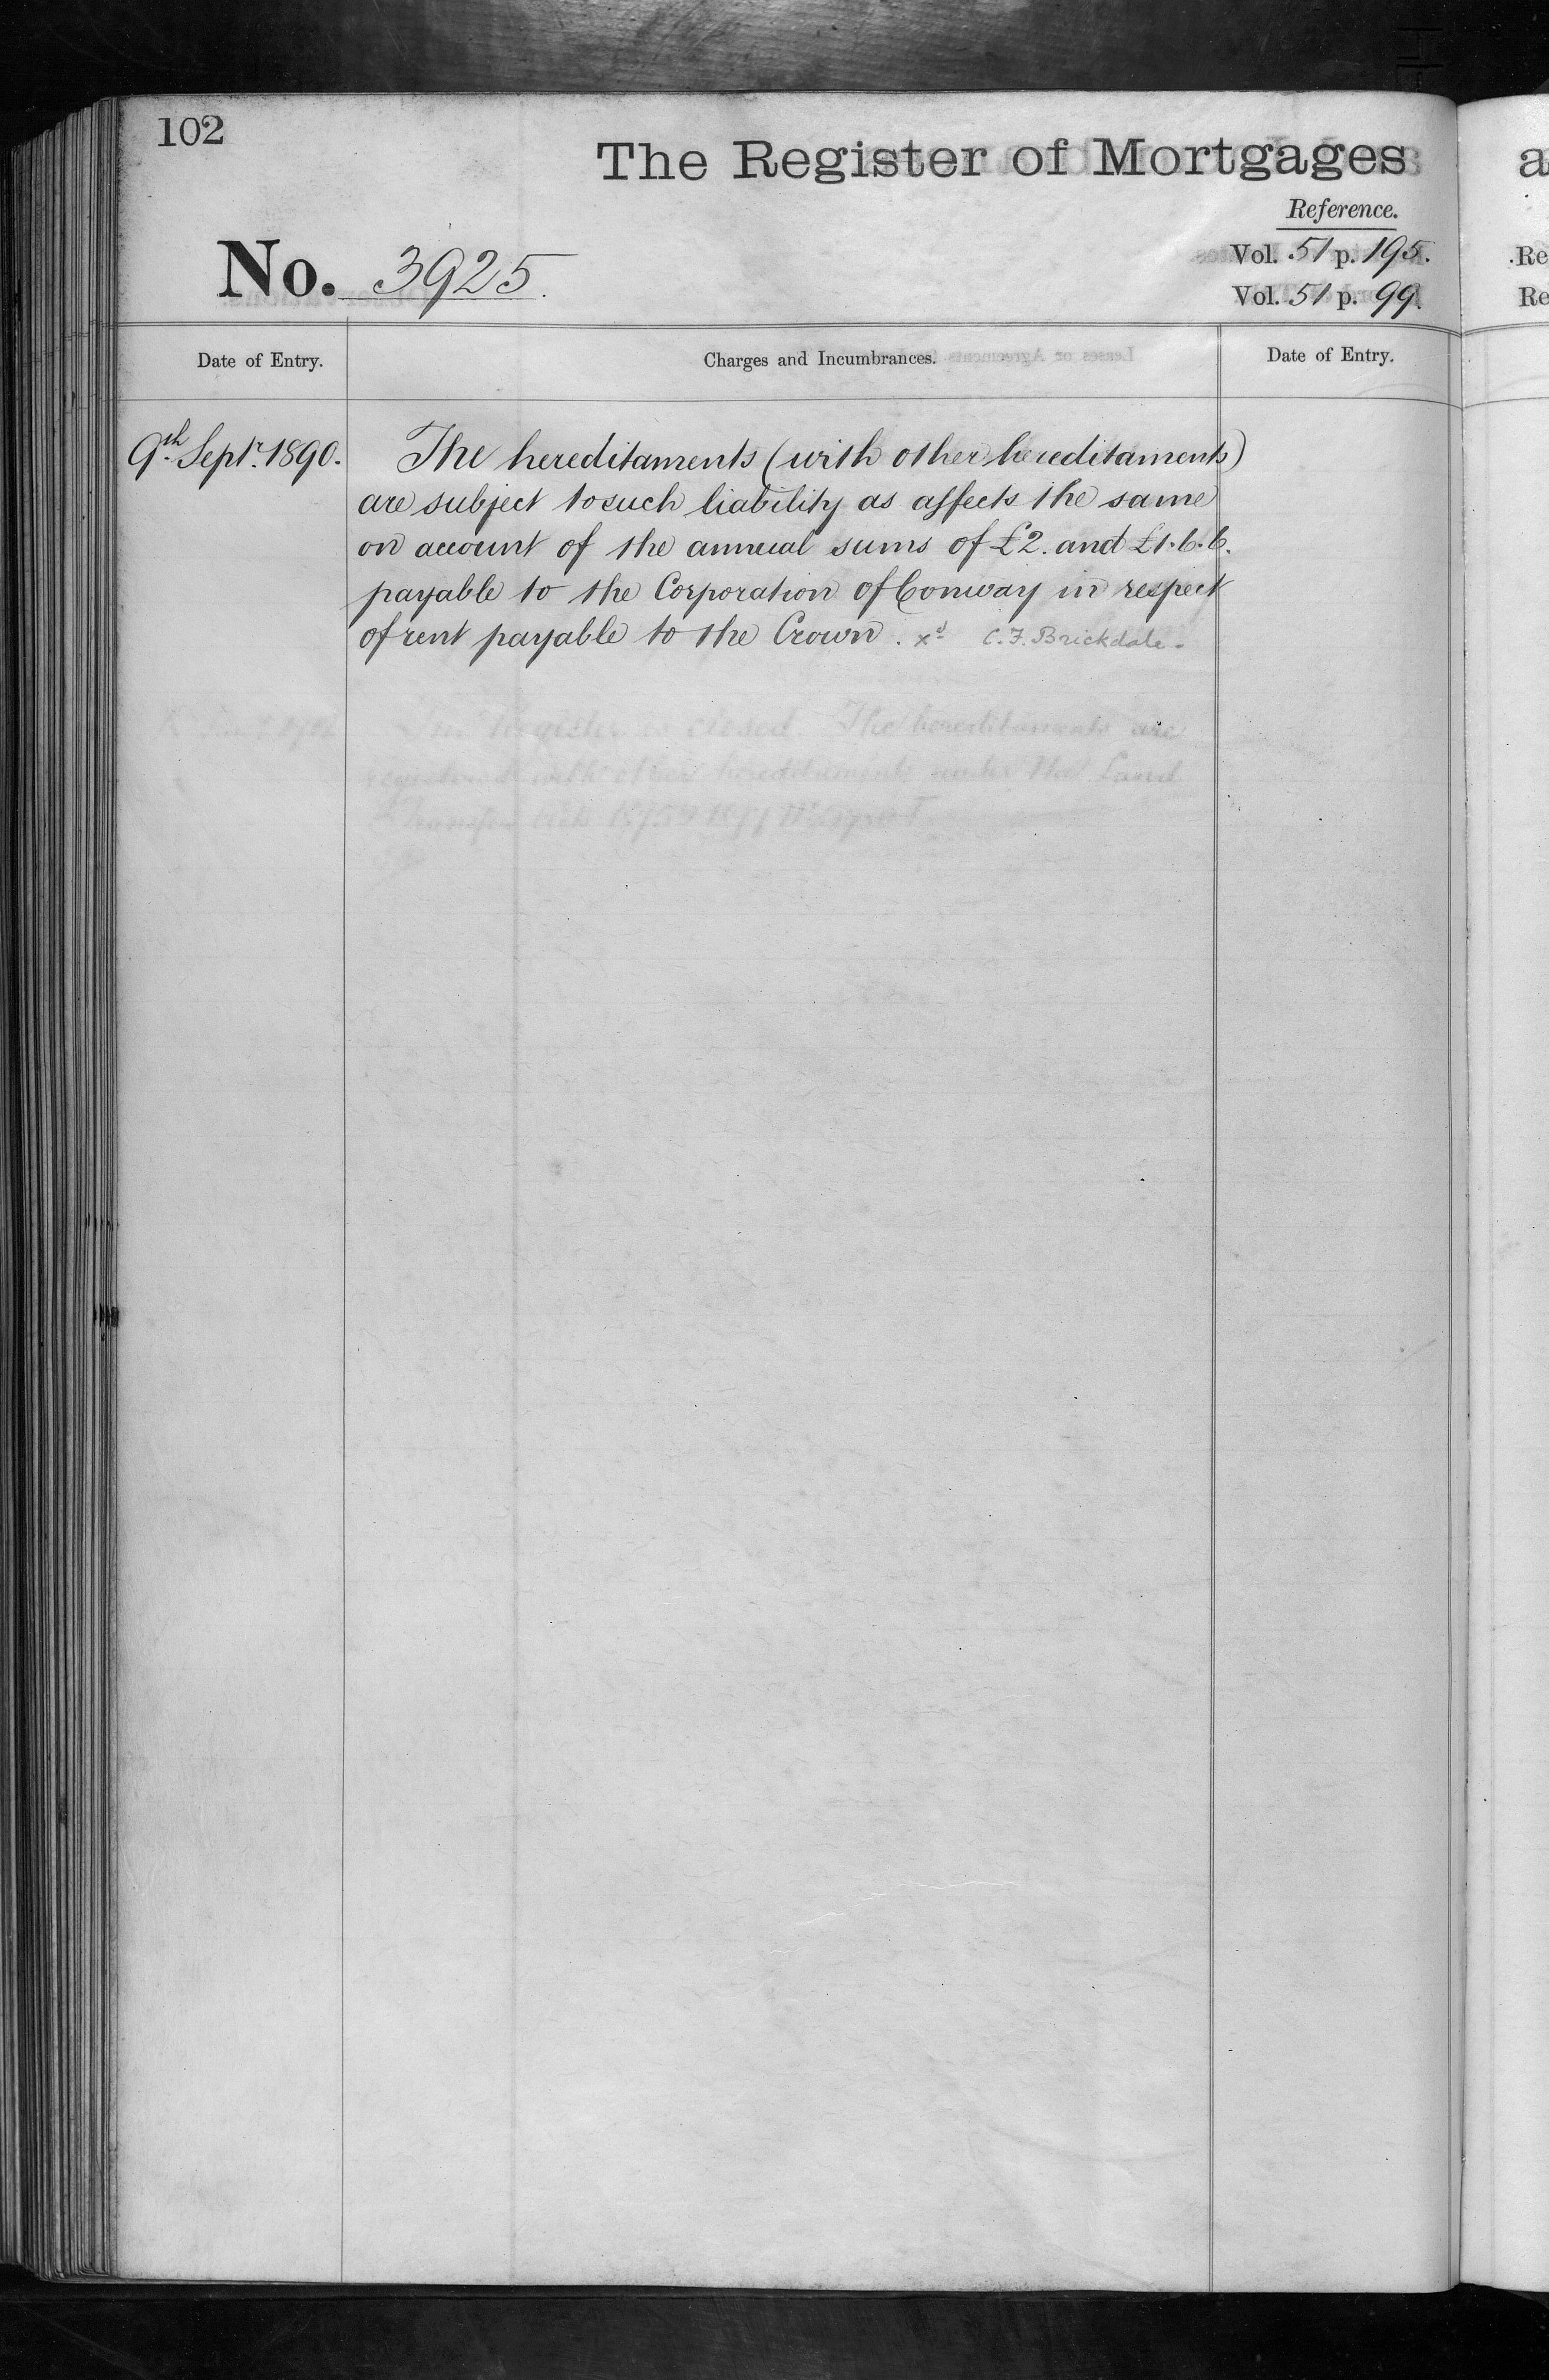 102
The Register of Mortgages
Reference.
No. 3925.
Vol. 51 p. 195.
Vol. 51 p. 99.
Date of Entry.
Charges and Incumbrances.
Date of Entry.
9th Septr. 1890.
The hereditaments (with other hereditaments)
are subject to such liability as affects the same
on account of the annual sums of £2. and £1.6.6.
payable to the Corporation of Conway in respect
of rent payable to the Crown. xd C.F. Brickdale.
Register is closed. The hereditaments are
with other hereditaments under the Land
Transfer
a
Re
Re